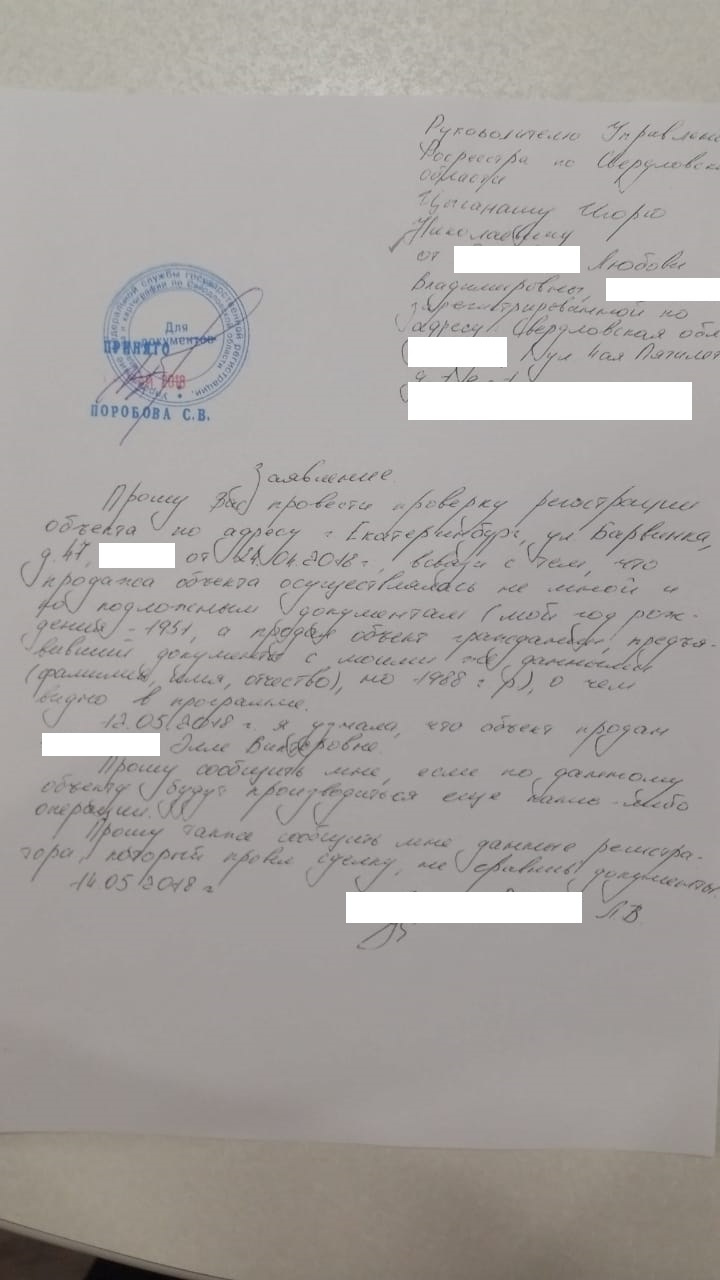 Руководителю Управлен
Росреестра по Свердловск
области
Цыганашу Игорю
Николаевичу
от Любови
Владимировны,
зарегистрированной по
адресу: Свердловская обл
ул 4ая Пятилет
Федеральной службы государственной регистрации,
и картографии по Свердловской области
Для
документов
ПРИНЯТО
2018
ПОРОБОВА С.В.
Заявление.
Прошу Вас провести проверку регистрации
объекта по адресу г. Екатеринбург, ул. Барвинка,
д. 47, от 24.04.2018г., в связи с тем, что
продажа объекта осуществлялась не мной и
по подложным документам (мой год рож-
дения - 1951, а продан объект гражданкой, предъя-
вившей документы с моими же данными
(фамилия, имя, отчество), но 1988 г. р), о чем
видно в программе.
12.05.2018 г. я узнала, что объект продан
Элле Викторовне.
Прошу сообщить мне, если по данному
объекту будут производиться еще какие-либо
операции.
Прошу также сообщить мне данные регистра-
тора, который провел сделку, не сравнив документы.
14.05.2018 г
Л.В.